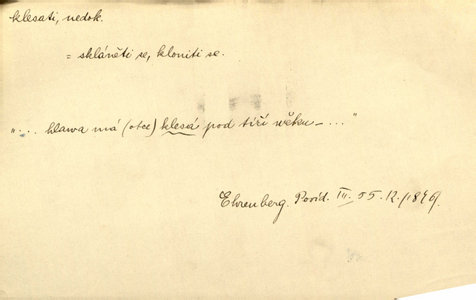 klesati, nedok.
= skláněti se, kloniti se.
"... hlawa má (otce) klesá pod tíží wěku – ..."
Ehrenberg. Povíd. III.